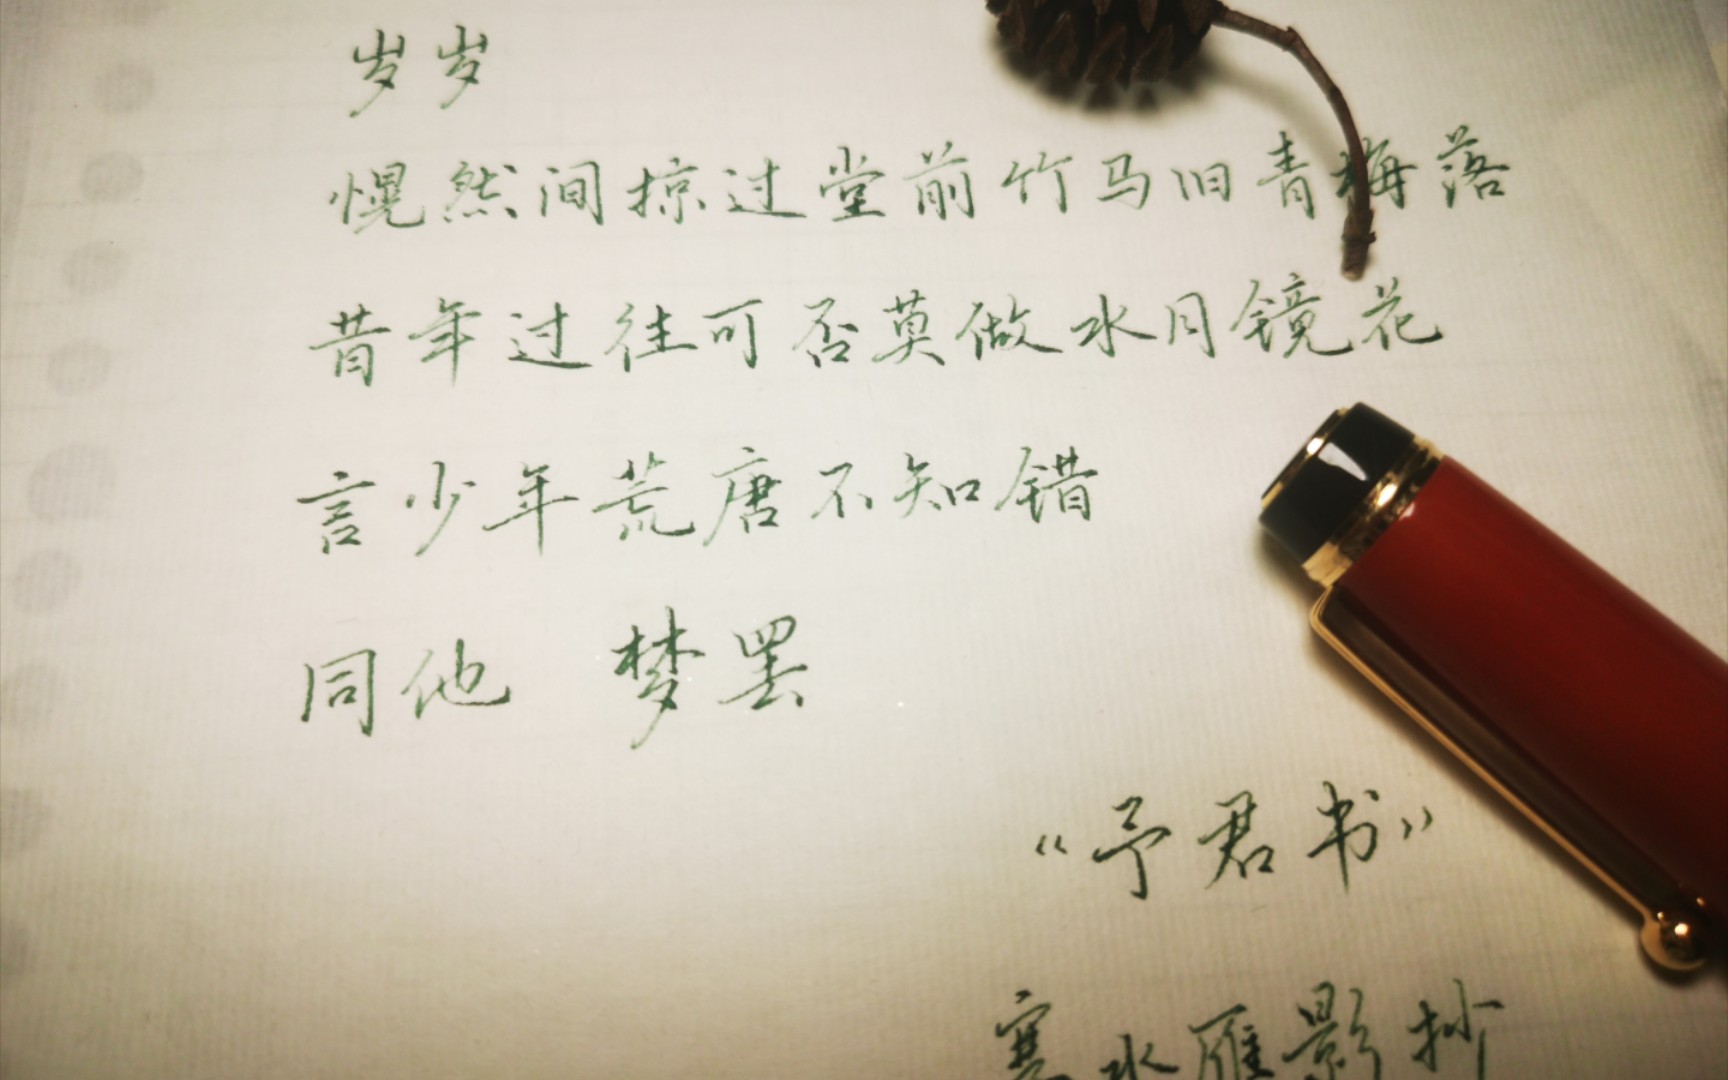 岁岁
愰然间掠过堂前竹马旧青梅落
昔年过往可否莫做水月镜花
言少年荒唐不知错
同他 梦罢
“予君书”
寒水雁影抄